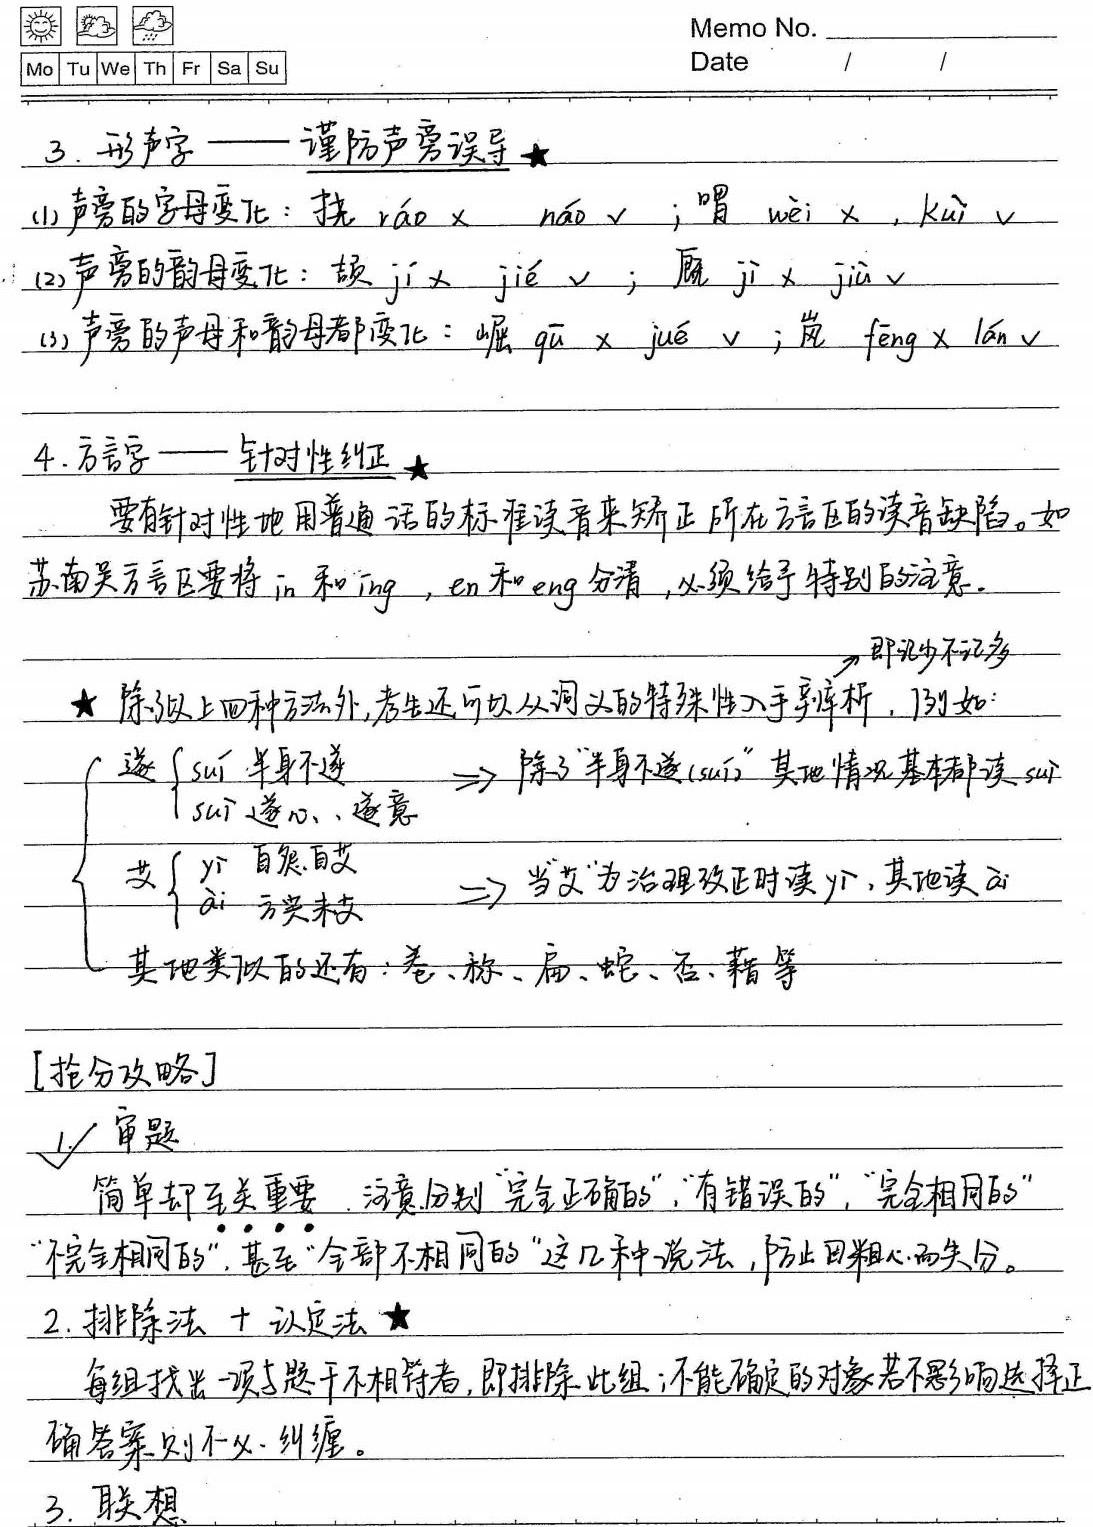 Memo No.
Mo Tu We Th Fr Sa Su
Date / /
3. 形声字 —— 谨防声旁误导 ★
(1) 声旁的字母变化：挠 ráo × náo ✓ ；喟 wèi × ，kuì ✓
(2) 声旁的韵母变化：颉 jí × jié ✓ ； 厩 jì × jiù ✓
(3) 声旁的声母和韵母都变化：崛 qū × jué ✓ ；岚 fēng × lán ✓
4. 方言字 —— 针对性纠正 ★
要有针对性地用普通话的标准读音来矫正所在方言区的读音缺陷。如
苏南吴方言区要将 in 和 ing ，en 和 eng 分清，必须给予特别的注意。
即记少不记多
★ 除了以上四种方法外，考生还可以从词义的特殊性入手辨析，例如：
遂 suí 半身不遂 ⇒ 除了“半身不遂(suí)”其他情况基本都读 suì
suì 遂心、遂意
艾 yì 自怨自艾
ài 方兴未艾 ⇒ 当“艾”为治理改正时读 yì，其他读 ài
其他类似的还有：卷、称、扁、蛇、否、藉等
[抢分攻略]
1. 审题
简单却至关重要 . 注意分别“完全正确的”，“有错误的”，“完全相同的”
“不完全相同的”，甚至“全部不相同的”这几种说法，防止因粗心而失分。
2. 排除法 + 认定法 ★
每组找出一项与题干不相符者，即排除此组；不能确定的对象若不影响选择正
确答案则不必纠缠。
3. 联想